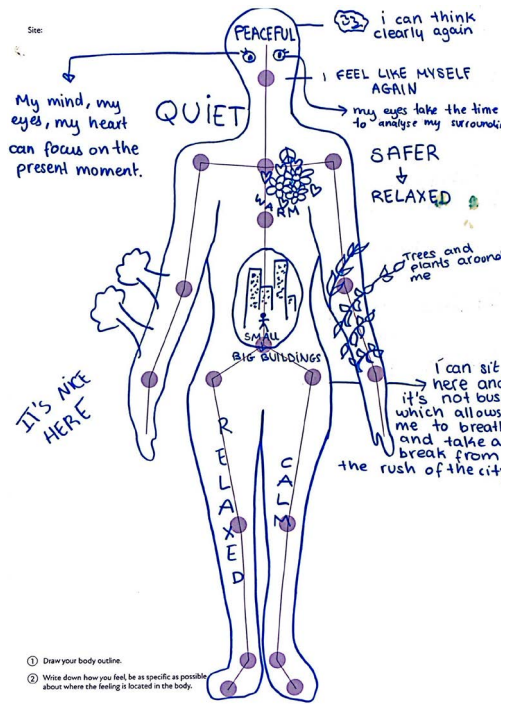 Site:
PEACEFUL
i can think
clearly again
I FEEL LIKE MYSELF
AGAIN
My mind, my
eyes, my heart
can focus on the
present moment.
QUIET
my eyes take the time
to analyse my
SAFER
RELAXED
WARM
Trees and
plants around
me
SMALL
BIG BUILDINGS
IT'S NICE
HERE
i can sit
here and
it's not
which allows
me to
and take a
break from
the rush of the
RELAXED
CALM
1 Draw your body outline.
2 Write down how you feel, be as specific as possible
about where the feeling is located in the body.